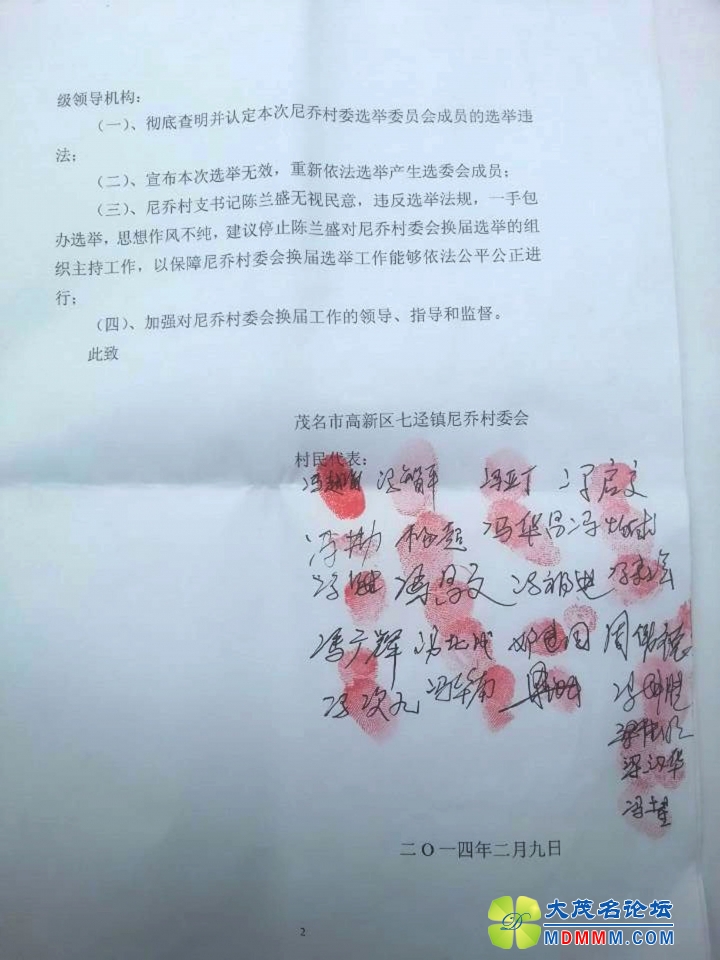 级领导机构：
（一）、彻底查明并认定本次尼乔村委选举委员会成员的选举违
法；
（二）、宣布本次选举无效，重新依法选举产生选委会成员；
（三）、尼乔村支书记陈兰盛无视民意，违反选举法规，一手包
办选举，思想作风不纯，建议停止陈兰盛对尼乔村委会换届选举的组
织主持工作，以保障尼乔村委会换届选举工作能够依法公平公正进
行；
（四）、加强对尼乔村委会换届工作的领导、指导和监督。
此致
茂名市高新区七迳镇尼乔村委会
村民代表：
冯智军 冯亚丁 冯启文
杨超 冯华昌
冯广辉
冯次九 冯华南
梁汉华
二〇一四年二月九日
2
大茂名论坛
MDMMM.COM